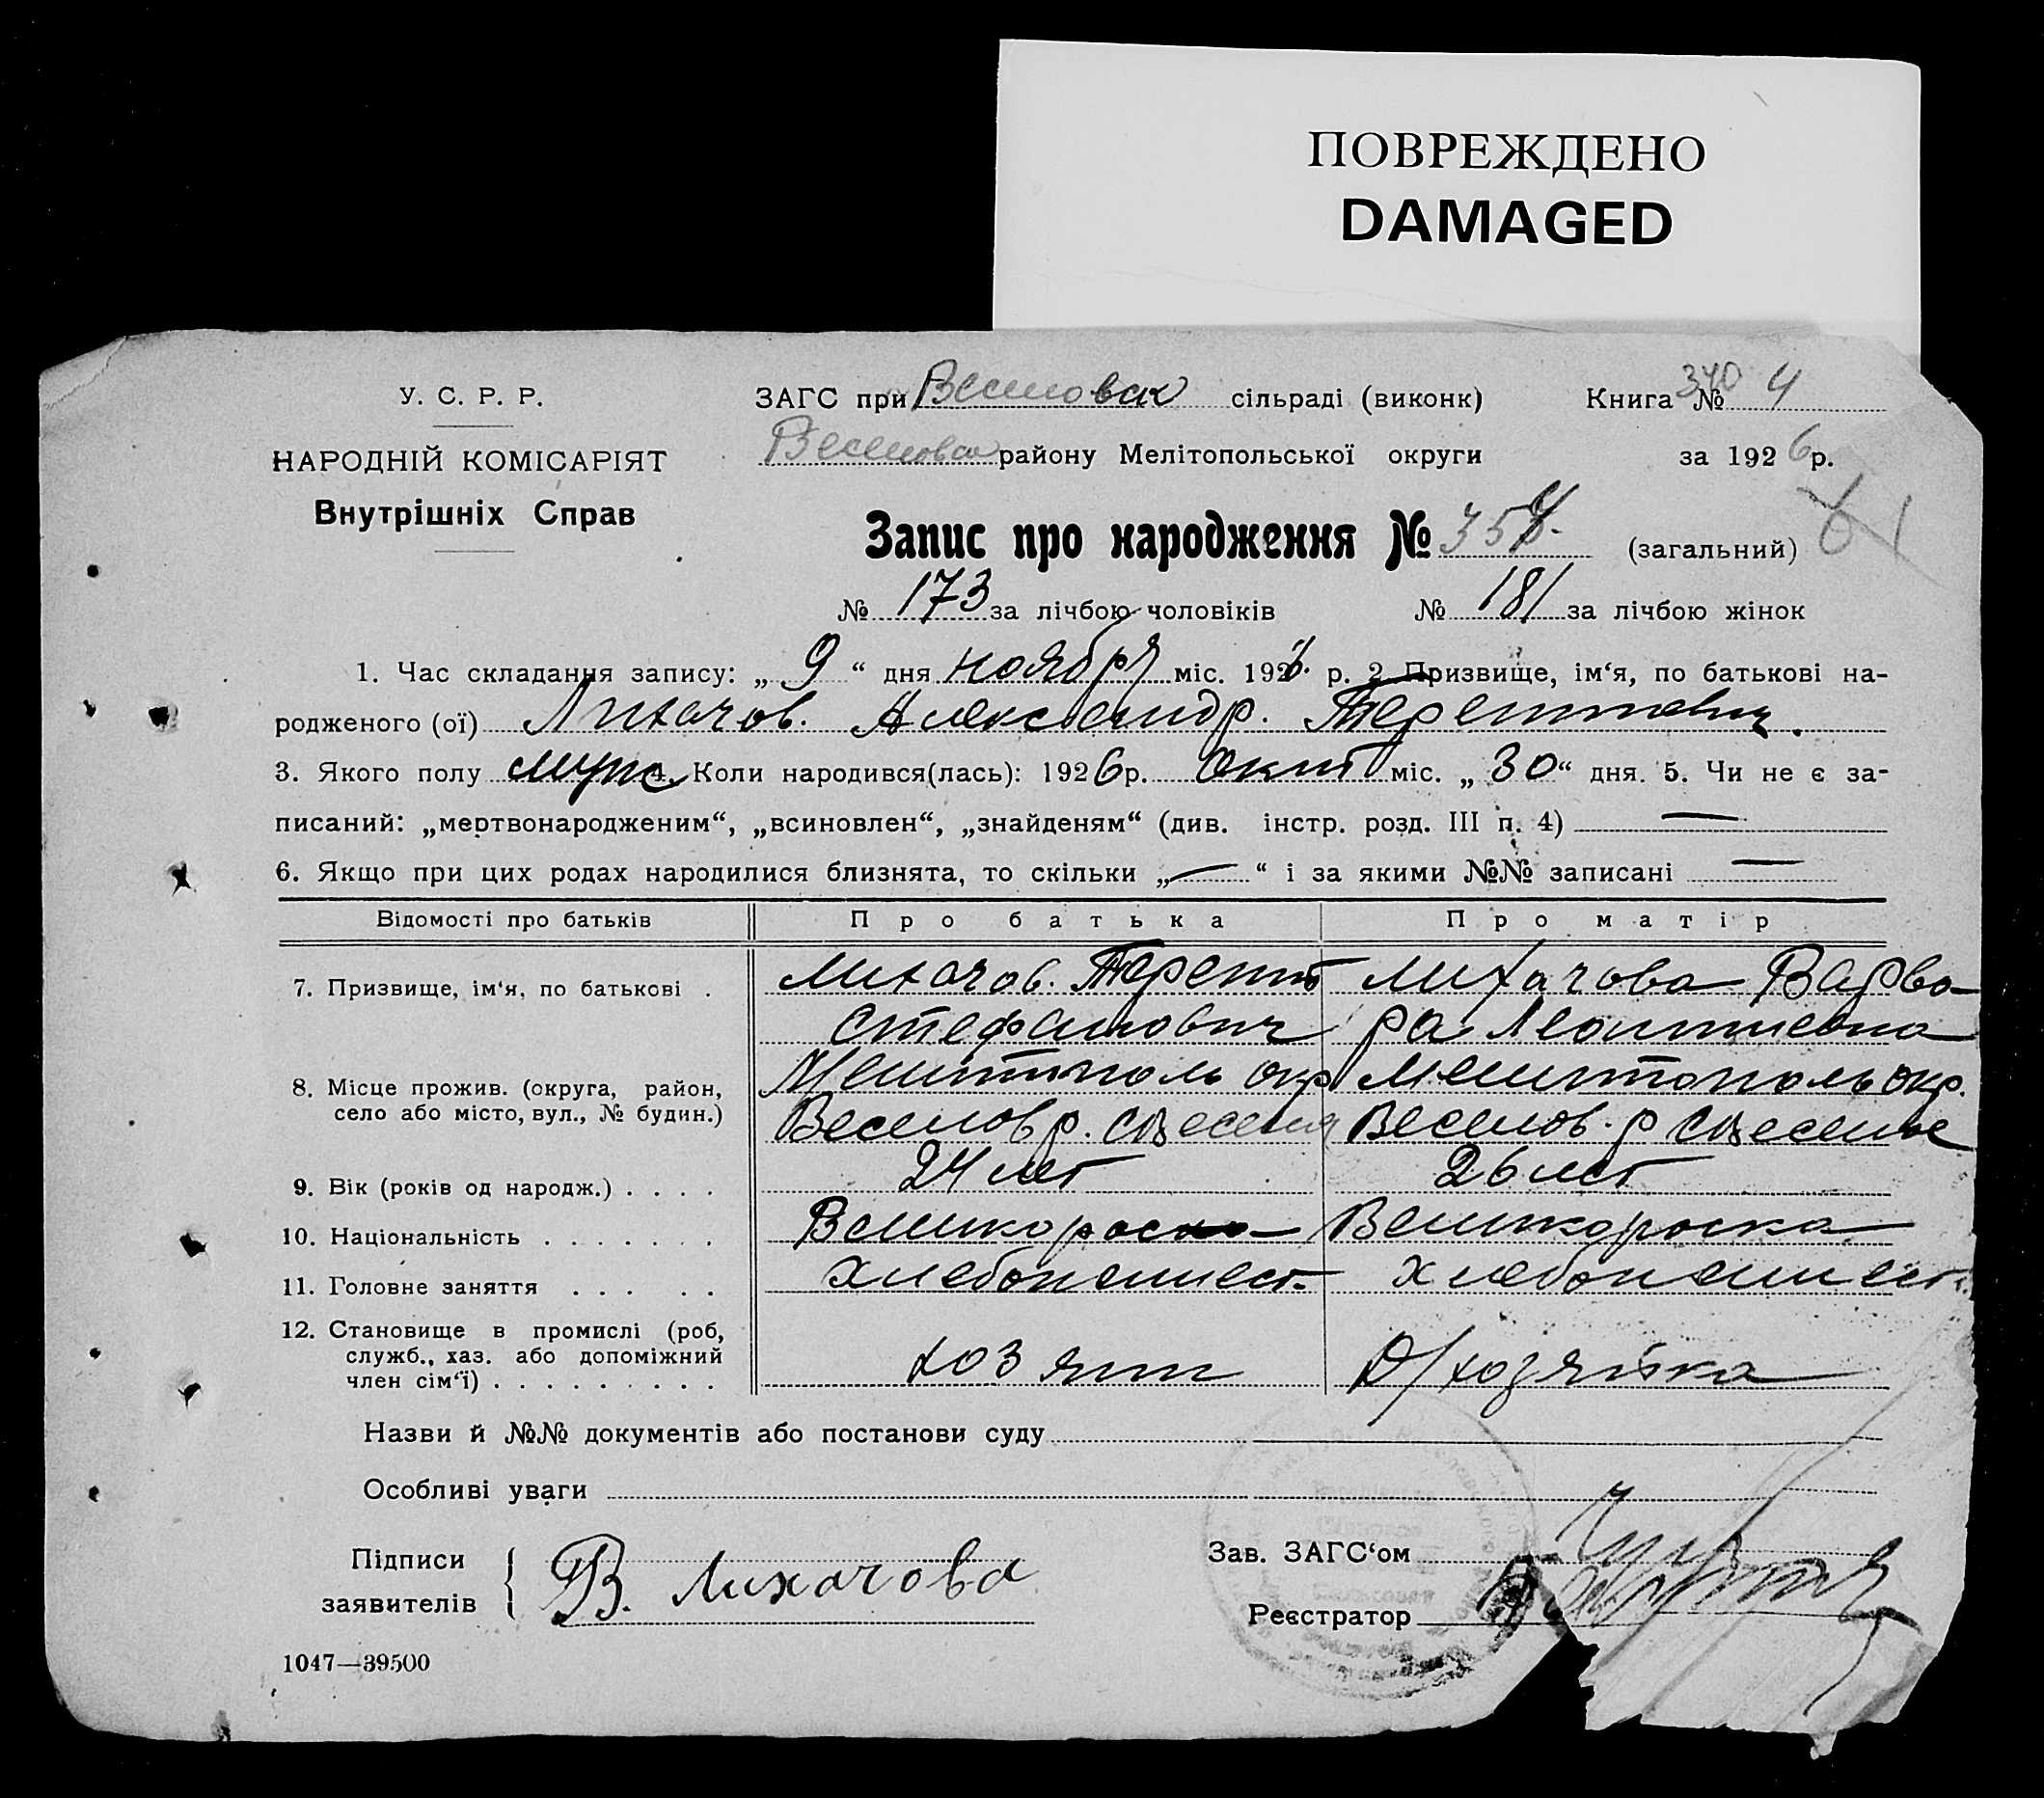 ПОВРЕЖДЕНО
DAMAGED
У. С. Р. Р.
НАРОДНІЙ КОМІСАРІЯТ
Внутрішніх Справ
ЗАГС при Веселовск сільраді (виконк)
Книга № 340 4
Веселовск району Мелітопольської округи
за 1926 р.
Запис про народження № 354. (загальний)
61
№ 173 за лічбою чоловіків № 181 за лічбою жінок
1. Час складання запису: „ 9 “ дня ноября міс. 1926. р. 2 Призвище, ім‘я, по батькові на-
родженого (ої) Лихачов. Александр. Терентиевич.
3. Якого полу муж 4. Коли народився(лась): 1926 р. Окт міс. „ 30 “ дня. 5. Чи не є за-
писаний: „мертвонародженим“, „всиновлен“, „знайденям“ (див. інстр. розд. III п. 4) —
6. Якщо при цих родах народилися близнята, то скільки „ — “ і за якими №№ записані —
Відомості про батьків Про батька Про матір
7. Призвище, ім‘я, по батькові . Лихачов. Терентий Стефанович Лихачова Варвара Леонтиевна
8. Місце прожив. (округа, район,
село або місто, вул., № будин.)
Мелитополь окр Мелитополь окр.
Веселов р. с Веселое Веселов. р с Веселые
9. Вік (років од народж.) . . . . 24 лет 26 лет
10. Національність . . . . . . . Великороска Великороска
11. Головне заняття . . . . . хлебопашест. хлебопашест.
12. Становище в промислі (роб,
служб., хаз. або допоміжний
член сім‘ї) . . . . . . . . . хозяин Д/хозяйка
Назви й №№ документів або постанови суду
Особливі уваги
Підписи
заявителів
В. Лихачова
Зав. ЗАГС‘ом
Реєстратор
1047—39500